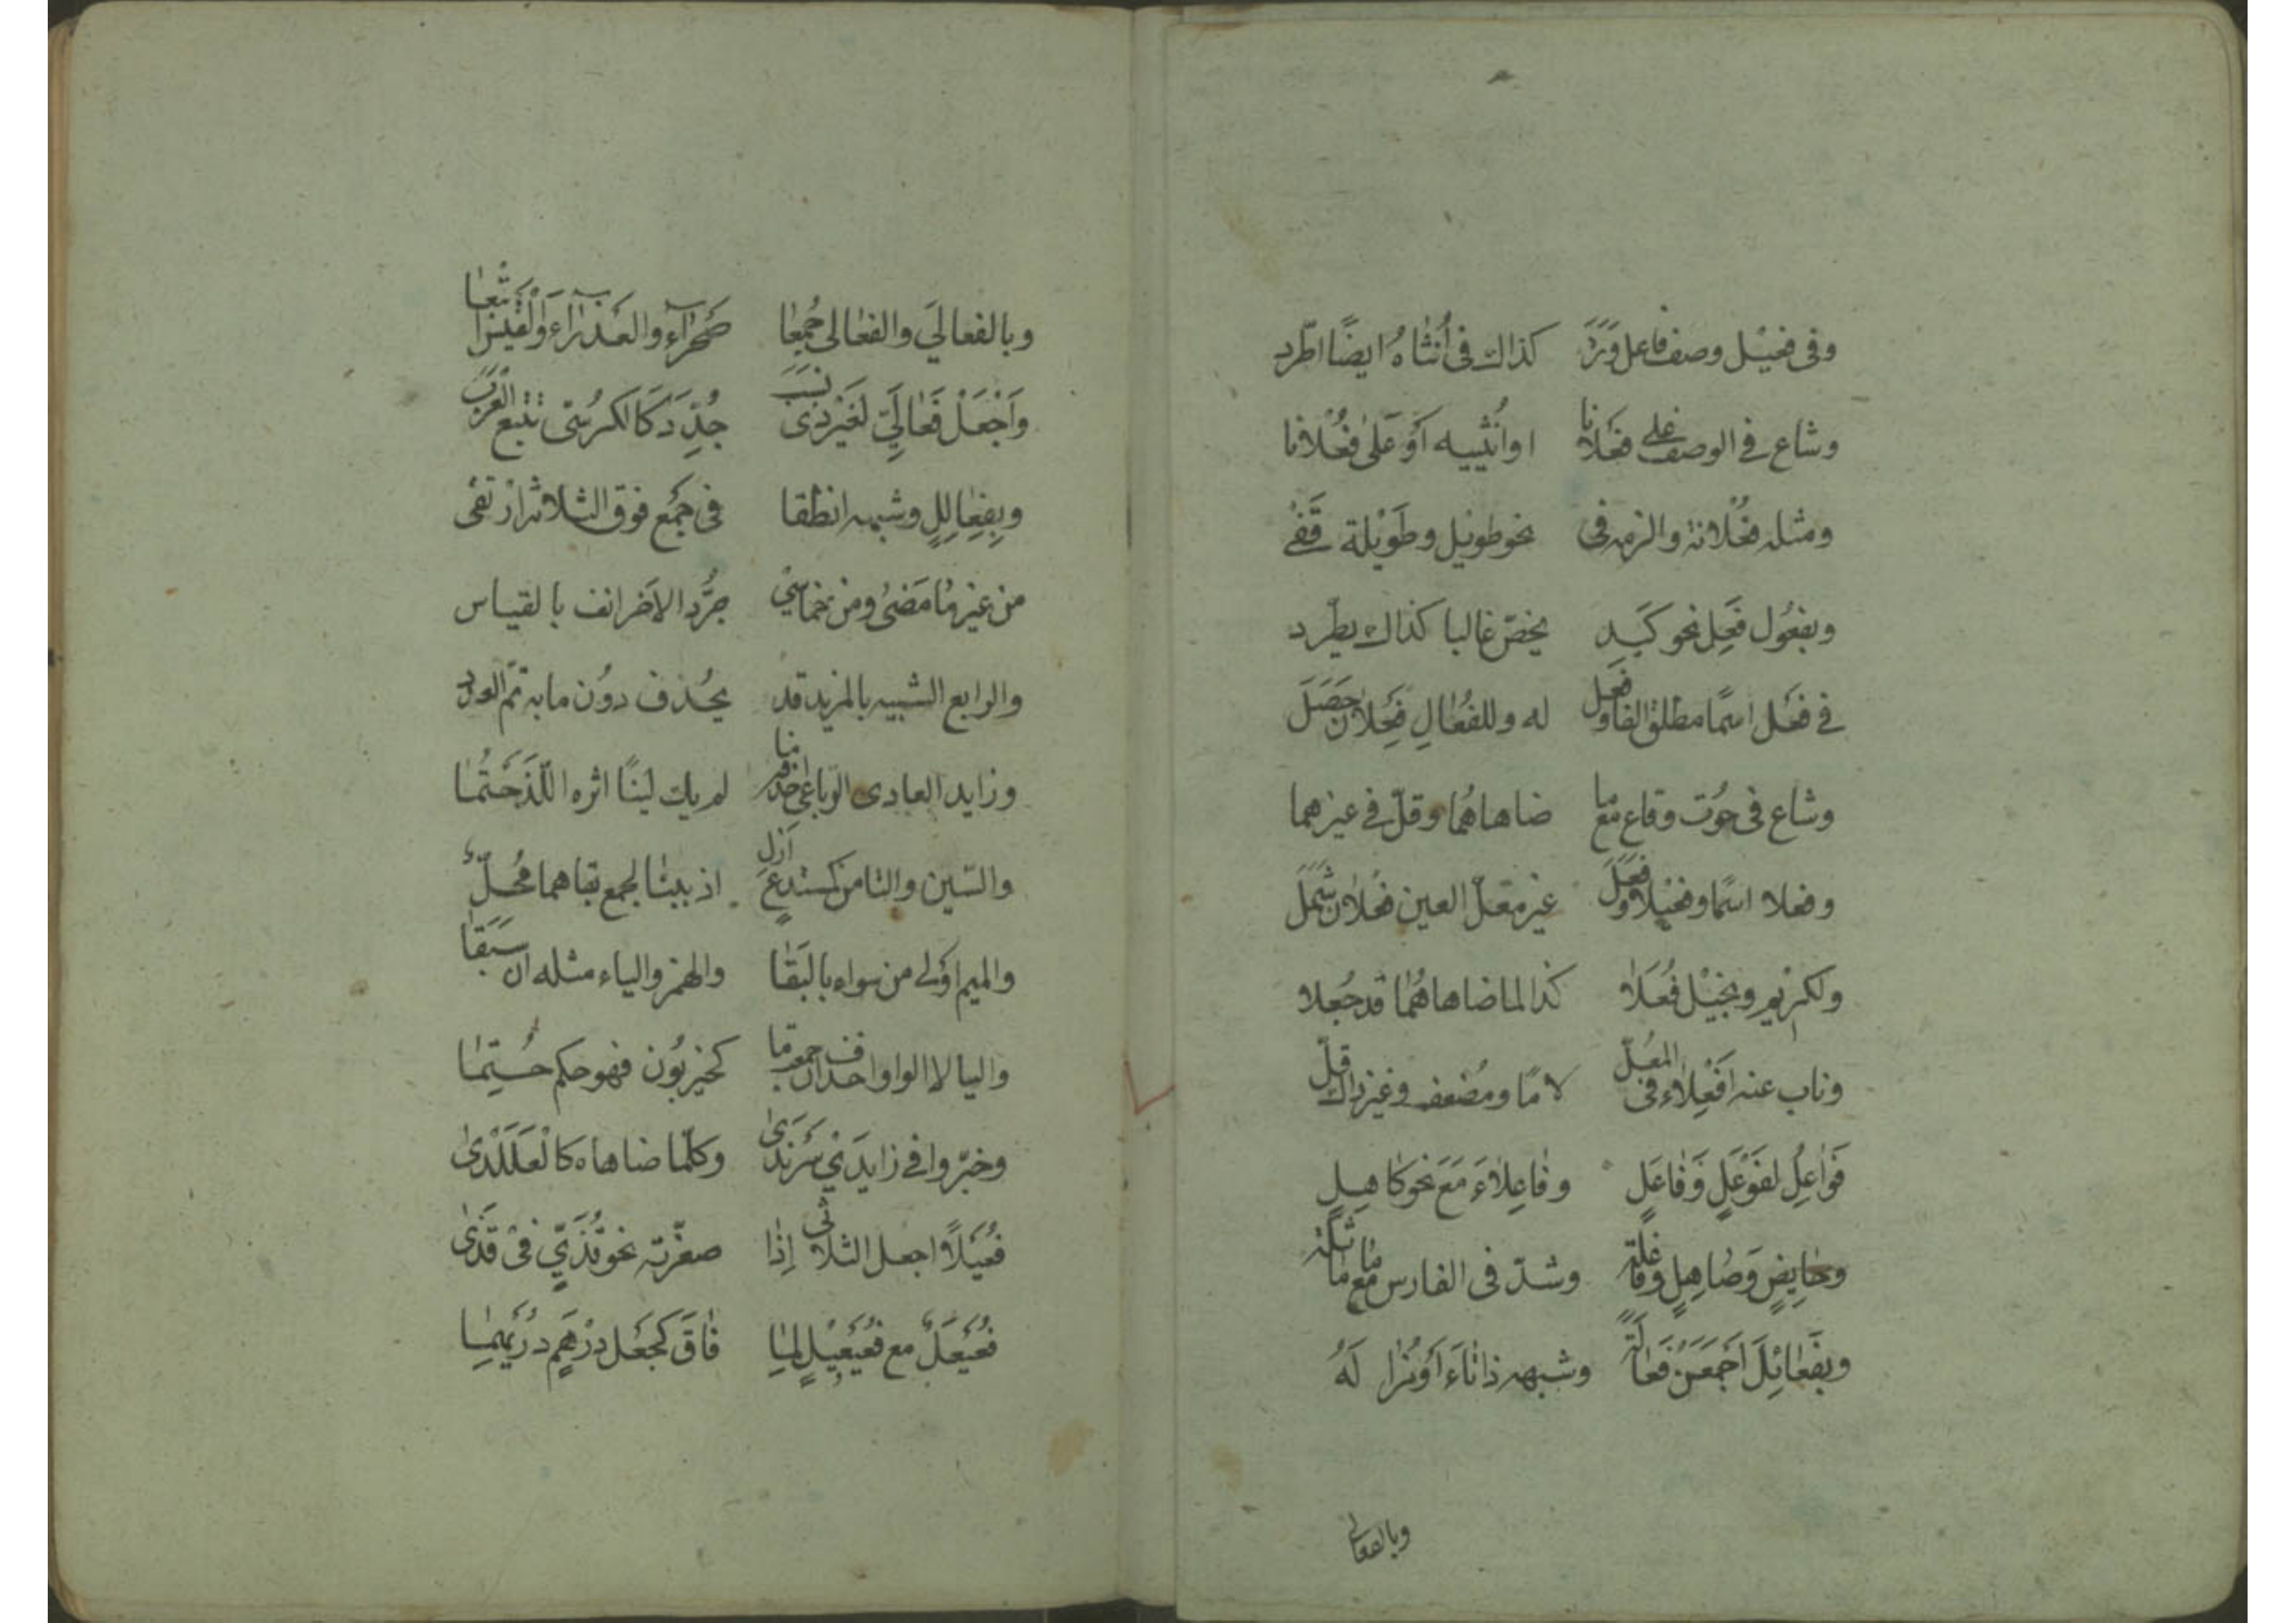 وفى فعيل وصف فاعل وَرَدَ كذاك فى أُنثاهُ ايضًا اطّرد
وشاع فى الوصف على فَعلانا او اُنثييه اَوْ عَلىٰ فُعْلانا
ومثله فُعْلانة والزمه فى نحو طويل وطَوْيلة تَفى
وبفُعُول فَعِل نحو كَبِد يخصّ غالبا كذاك يطّرد
فى فعل اسمًا مطلق الفا وفَعَل له وللفُعَالِ فِعْلان حَصَلَ
وشاع فى حُوت وقاع مع ما ضاهاهُما وقلّ فى غيرهما
وفعلا اسمًا وفعيلا وفَعَلَ غير معلّ العين فُعْلان شَمَلَ
ولكريمٍ وبخيْل فُعَلاٰ كذا لما ضاهاهُمٰا قد جُعلا
وناب عنه اَفْعِلاٰء فى المُعَلّ لامًا ومُضعف وغير ذاك قلّ
فَوٰاعِلُ لفَوْعَلٍ وَفٰاعَلٍ وفٰاعِلاٰءَ مَعَ نحو كٰاهِلٍ
وحٰايِضٍ وَصٰاهِلٍ وفٰاعِلَةٍ وشذّ فى الفارس مع مٰا مٰاثَلَهْ
وبفَعٰائِلَ اَجْمَعَنْ فَعٰالَةً وشبهه ذا تٰاءَ اَوْ مُزٰالَهُ
وبالفعالى
وبالفعالَي والفعٰالى جُمِعٰا صَحْرٰآء والعَذْرٰآء وَالْقَيْسَ اتْبَعٰا
وَاَجْعَلْ فَعٰالِيَّ لغَيْرِ ذى نَسَبَ جُدِّدَ كَالكرُسّى تتبع الْعَرَبَ
وبِفَعٰالِلٍ وشبهه انطقا فى جَمْع فوق الثلاثة ارْتقى
من غير مٰا مَضىٰ ومن خماسيٍّ جُرّد الاٰخر انف بالقياس
والرابع الشبيه بالمزيد قد يُحذف دوُن ما به تمّ العدد
وزايد العادى الرّباعى احذفه ما لم يك لينًا اثره اللّذ خَتَمٰا
والسّين والتا من كمستدعٍ اَزِلِ اذ ببنٰا الجمع بقاهما مُخلّ
والميم اَولى من سواه بالبَقٰا والهمز والياء مثله ان سَبَقٰا
واليا لا الواو احذف ان جمعت ما كحيزبُون فهو حكم حُتِمٰا
وخيّروا فى زايدَيْ سَرَنْدىٰ وكلّما ضاهاه كالْعَلَنْدىٰ
فُعَيْلاً اجعل الثلاثى إِذٰا صغّرته نحو قُذَيٍّ فى قَذىٰ
فُعَيْعَلٌ مع فُعَيْعيلٍ لمٰا فٰاقَ كجَعْلِ دِرْهَمٍ دُرَيْهِمٰا